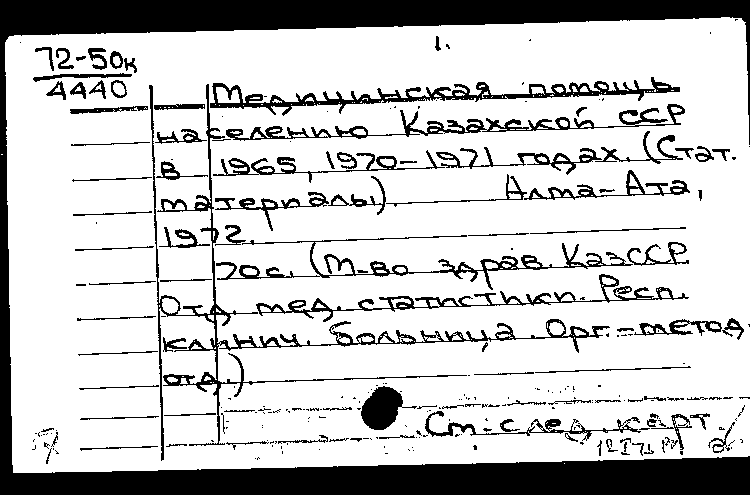 1.
72-50к
4440
Медицинская помощь
населению Казахской ССР
в 1965, 1970-1971 годах. (Стат.
материалы). Алма-Ата,
1972.
70с. (М-во здрав. КазССР
Отд. мед. статистики. Респ.
клинич. больница. Орг.-метод.
отд.).
См. след. карт.